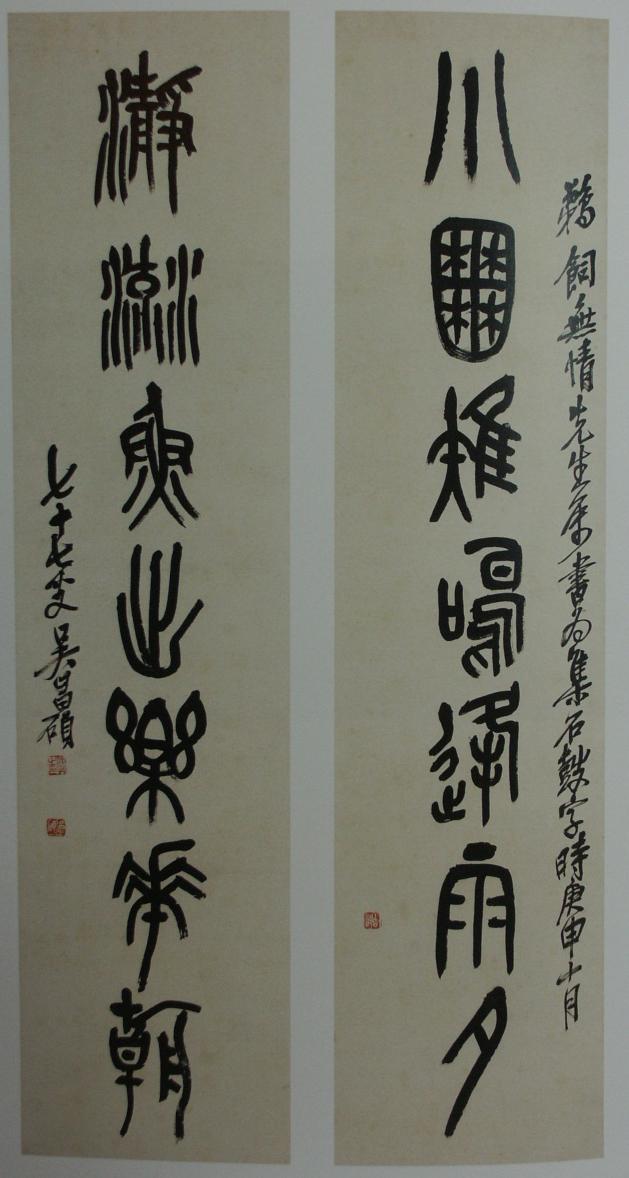 鵜飼無情先生屬書為集石鼓字時庚申十月
小囿雉鳴逢雨夕
瀞流魚出樂華朝
七十七叟吳昌碩